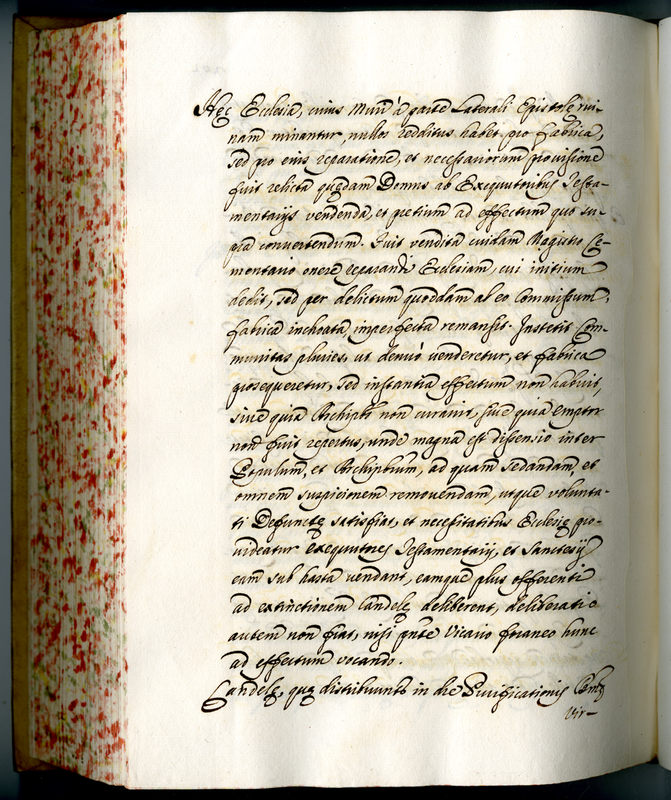 Hęc Ecclesia, cuius Muri à parte Laterali Epistolę rui-
nam minantur, nullos redditus habet pro fabrica,
sed pro eius reparatione, et necessariorum provisione
fuit relicta quędam Domus ab Exequutoribus Testa-
mentarijs vendenda, et pretium ad effectum quo su-
pra convertendum. Fuit vendita cuidam Magistro Cę-
mentario onere reparandi Ecclesiam, cui initium
dedit, sed per delictum quoddam ab eo Commissum,
fabrica inchoata, imperfecta remansit. Institit Com-
munitas pluries, ut denuò venderetur, et fabrica
prosequeretur, sed instantia effectum non habuit,
sive quia Archipbr non curavit, sive quia emptor
non fuit repertus, unde magna est dissensio inter
Populum, et Archipbrum, ad quam sedandam, et
omnem suspicionem removendam, utque volunta-
ti Defunctę satisfiat, et necessitatibus Ecclesię pro-
videatur exequutores Testamentarij, et Santesij
eam sub hasta vendant, eamque plus offerenti
ad extinctionem Candelę deliberent, deliberatio
autem non fiat, nisi pnte Vicario foraneo hunc
ad effectum vocando.
Candelę, quę distribuunts in die Purificationis Bmę
Vir-